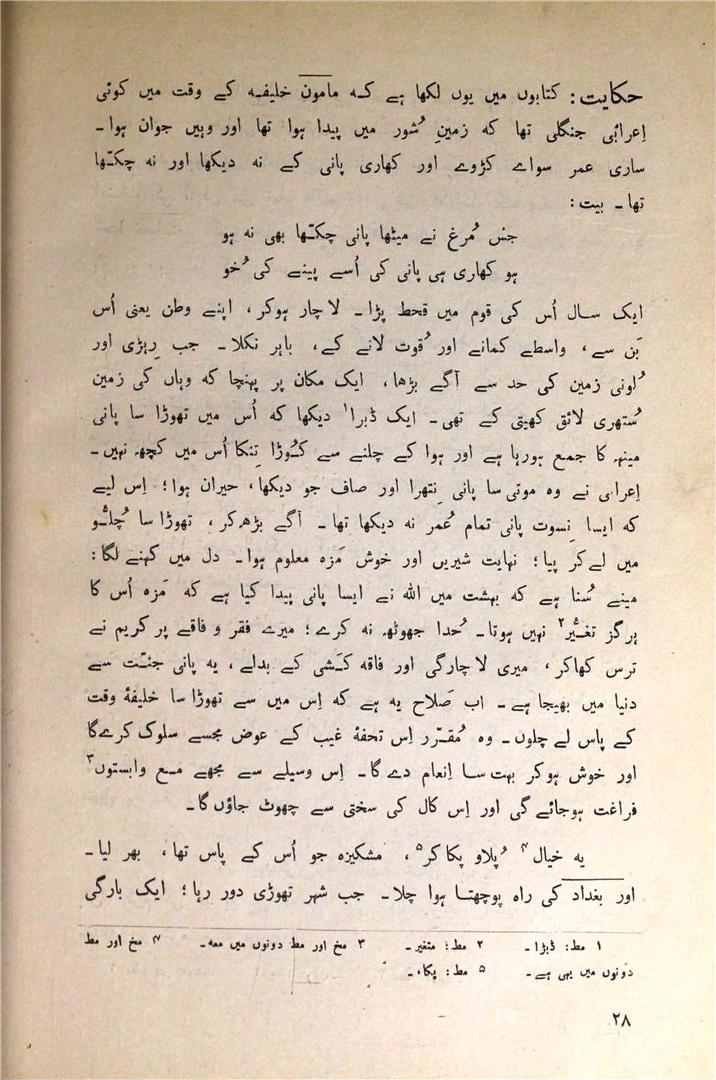 حکایت: کتابوں میں یوں لکھا ہے کہ مامون خلیفہ کے وقت میں کوئی
اِعرابی جنگلی تھا کہ زمینِ شُور میں پیدا ہوا تھا اور وہیں جوان ہوا۔
ساری عمر سواے کڑوے اور کھاری پانی کے نہ دیکھا اور نہ چکھّا
تھا۔ بیت:
جس مُرغ نے میٹھا پانی چکھّا بھی نہ ہو
ہو کھاری ہی پانی کی اُسے پینے کی خُو
ایک سال اُس کی قوم میں قحط پڑا۔ لاچار ہوکر، اپنے وطن یعنی اُس
بَن سے، واسطے کمانے اور قُوت لانے کے، باہر نکلا۔ جب رِہڑی اور
لُونی زمین کی حد سے آگے بڑھا، ایک مکان پر پہنچا کہ وہاں کی زمین
سُتھری لائق کھیتی کے تھی۔ ایک ڈبرا۱ دیکھا کہ اُس میں تھوڑا سا پانی
مینہہ کا جمع ہورہا ہے اور ہوا کے چلنے سے کُوڑا تِنکا اُس میں کچھ نہیں۔
اِعرابی نے وہ موتی سا پانی نِتھرا اور صاف جو دیکھا، حیران ہوا؛ اِس لیے
کہ ایسا نِسوت پانی تمام عُمر نہ دیکھا تھا۔ آگے بڑھ کر، تھوڑا سا چُلُّو
میں لےکر پیا؛ نہایت شیریں اور خوش مَزہ معلوم ہوا۔ دل میں کہنے لگا:
مینے سُنا ہے کہ بہشت میں اللہ نے ایسا پانی پیدا کیا ہے کہ مَزہ اُس کا
ہرگز تغیُّر۲ نہیں ہوتا۔ خُدا جھوٹھ نہ کرے؛ میرے فقر و فاقے پر کریم نے
ترس کھاکر، میری لاچارگی اور فاقہ کَشی کے بدلے، یہ پانی جنّت سے
دنیا میں بھیجا ہے۔ اب صَلاح یہ ہے کہ اِس میں سے تھوڑا سا خلیفۂ وقت
کے پاس لے چلوں۔ وہ مُقرّر اِس تحفۂ غیب کے عوض مجسے سلوک کرےگا
اور خوش ہوکر بہت سا اِنعام دے گا۔ اِس وسیلے سے مجھے مع وابستوں۳
فراغت ہوجائے گی اور اِس کال کی سختی سے چھوٹ جاؤں گا۔
یہ خیال۴ پُلاو پکا کر۵، مشکیزہ جو اُس کے پاس تھا، بھر لیا۔
اور بغداد کی راہ پوچھتا ہوا چلا۔ جب شہر تھوڑی دور رہا؛ ایک بارگی
۱ مط: ڈبڑا۔ ۲ مط: متغیر۔ ۳ مخ اور مط دونوں میں معہ۔ ۴ مخ اور مط
دونوں میں یہی ہے۔ ۵ مط: پکاء۔
۲۸